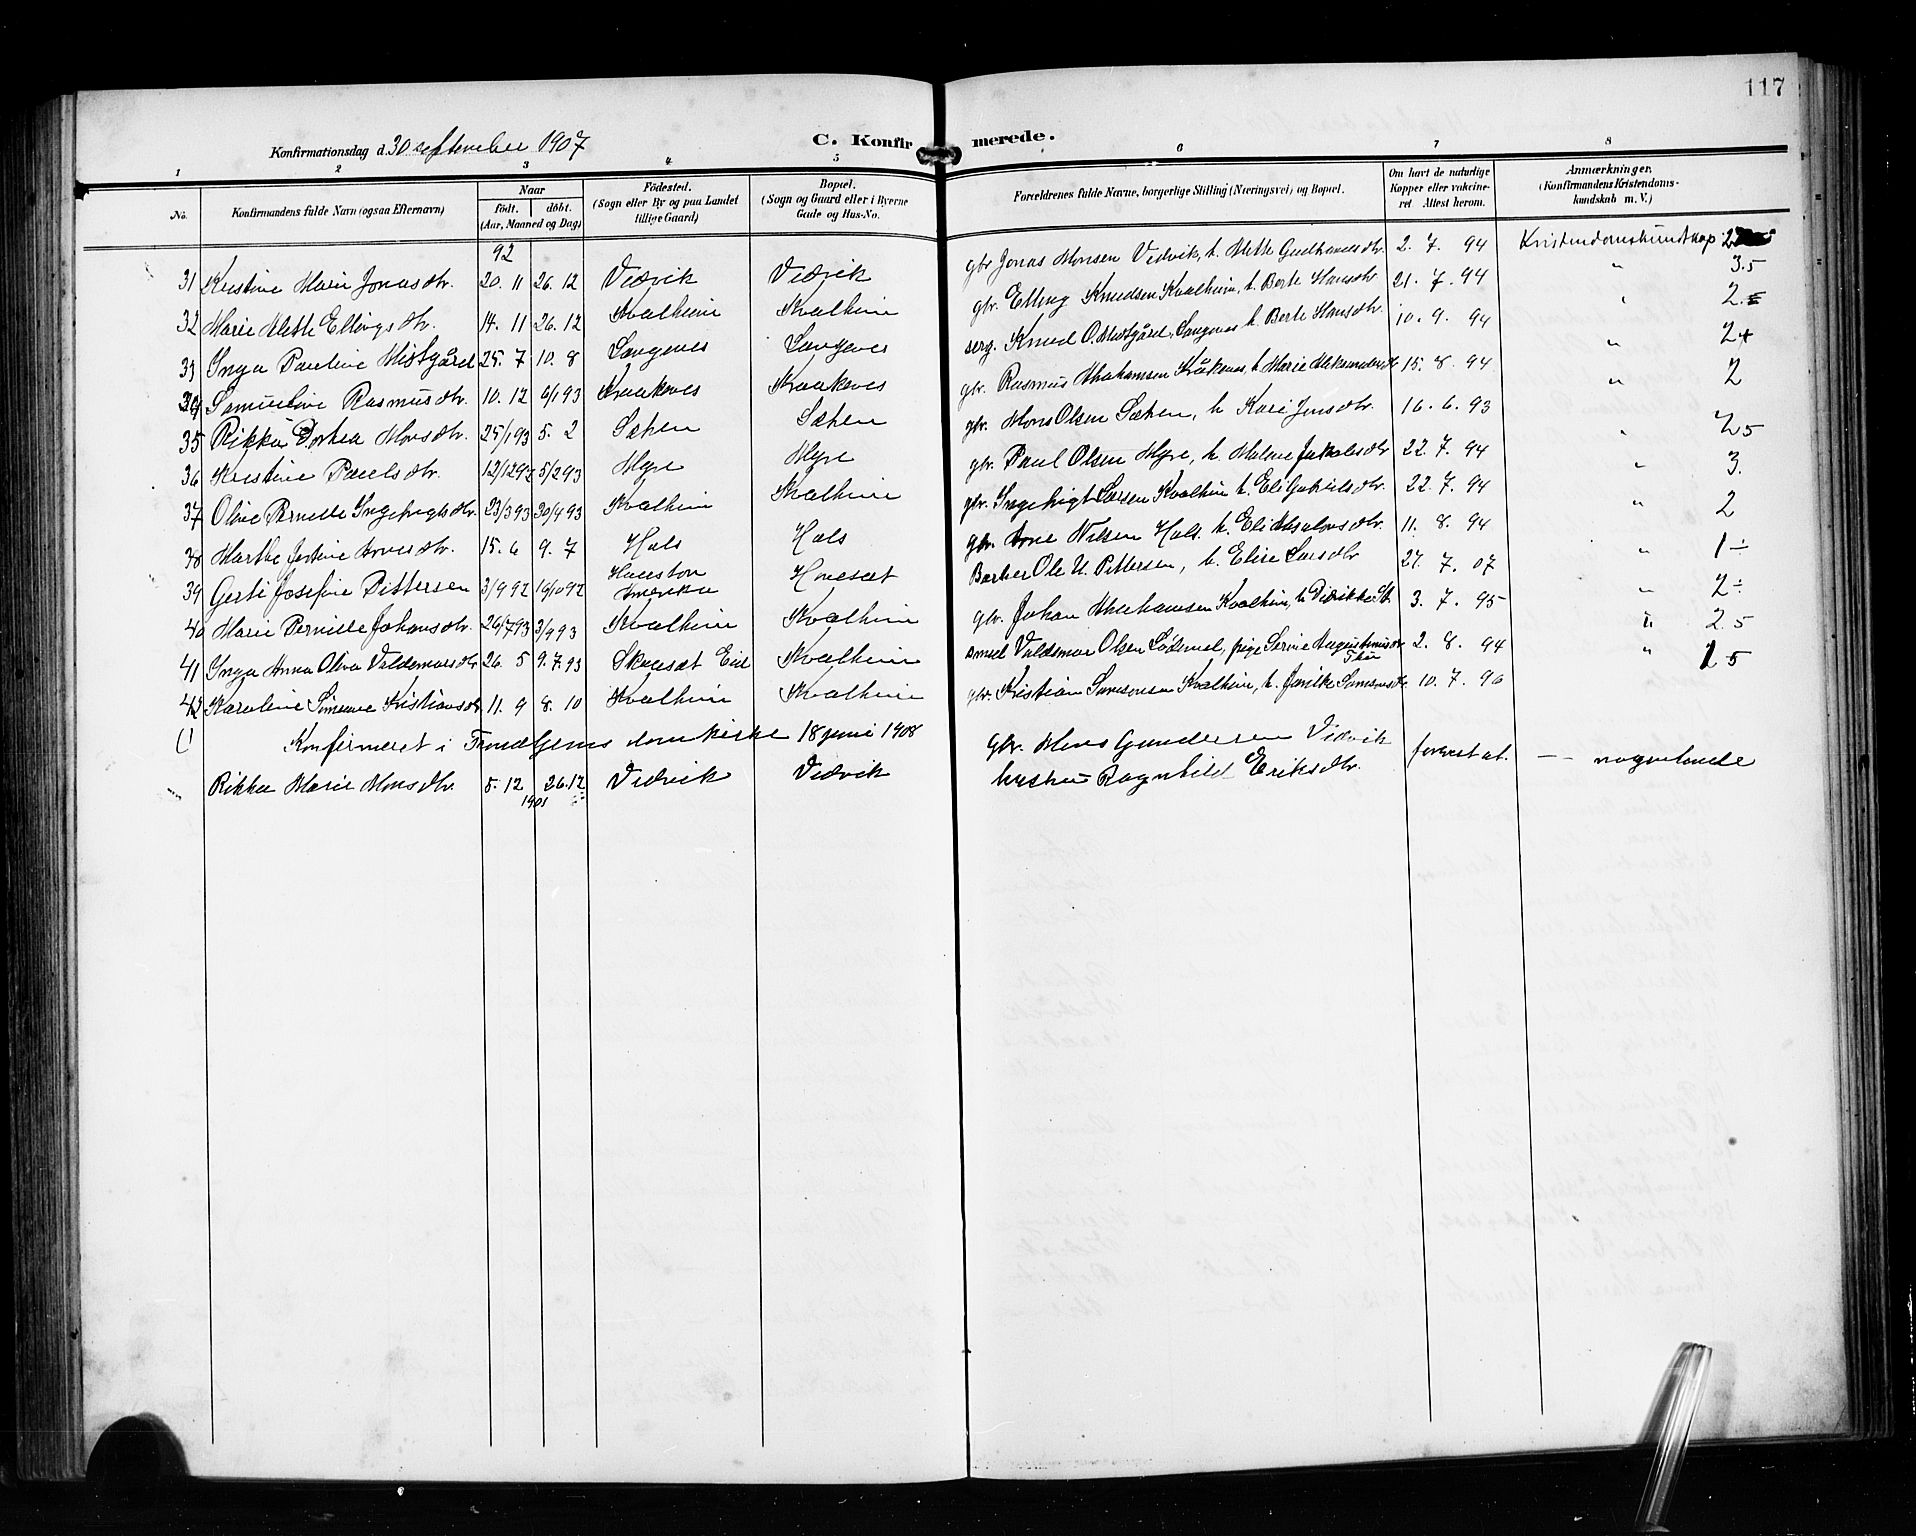 117
Konfirmationsdag d. 30 september 1907
C. Konfirmerede.
1 2 3 4 5 6 7 8
No. Konfirmandens fulde Navn (ogsaa Efternavn) Naar födt. döbt. (Aar, Maaned og Dag) Födested. (Sogn eller By og paa Landet tillige Gaard) Bopæl. (Sogn og Gaard eller i Byerne Gade og Hus-No. Forældrenes fulde Navne, borgerlige Stilling (Næringsvei) og Bopæl. Om havt de naturlige Kopper eller vakcineret Attest herom. Anmærkninger. (Konfirmandens Kristendomskundskab m. V.)
92
31 Kristine Marie Jonasdtr. 20. 11 26. 12 Vedvik Vedvik gbr Jonas Monsen Vedvik, h. Mette 2. 7. 94 Kristendomskundskap 2
32 Marie Mette Ellingsdtr. 14. 11 26. 12 Kvalheim Kvalheim gbr. Elling Knudsen Kvalheim, h. Berte Hansdtr 21. 7. 94 " 3.5
33 Inga Pauline Mistgård 25. 7 10. 8 Langenes Langenes serg. Knud O. Mistgård, Langenes h. Berte Hansdtr. 10. 9. 94 " 2
34 Samueline Rasmusdtr. 10. 12 6/1 93 Kraakenes Kraakenes gbr. Rasmus Abrahamsen Kråkenes, h. Marie 15. 8. 94 " 2
35 Rikka Dorthea Monsdtr. 25/1 93 5. 2 Sæter Sæter gbr. Mons Olsen Sæter, h. Kari Jonsdtr. 16. 6. 93 " 2
36 Kristine Paulsdtr. 12/12 92 5/2 93 Myre Myre gbr. Paul Olsen Myre, h. Malene Jakobsdtr 22. 7. 94 " 25
37 Oline Pernille Ingebrigtsdtr. 23/3 93 30/4 93 Kvalheim Kvalheim gbr. Ingebrigt Larsen Kvalheim h. Eli Gabrielsdtr. 22. 7. 94 " 3.
38 Marthe Jostine Arnesdtr. 15. 6 9. 7 Hals Hals gbr. Arne Nilsen Hals. h. Eli Absalonsdtr. 11. 8. 94 " 2
39 Gerti Josefine Pettersen 3/9 92 19/10 92 Houston Amerika Hovesæt Barber Ole U. Pettersen, h. Elise Larsdtr 27. 7. 07 " 1÷
40 Marie Pernille Johansdtr. 26/7 93 3/9 93 Kvalheim Kvalheim gbr. Johan Abrahamsen Kvalheim, h. Didrikke 3. 7. 95 " 2÷
41 Inga Anna Oliva Valdemarsdtr 26. 5 9. 7. 93 Skaasæt Eid Kvalheim smed Valdemar Olsen Lødemel, pige Serine Augustinusdtr 2. 8. 94 " 2.5
42 Karoline Simeane Kristiansdtr 11. 9 8. 10 Kvalheim Kvalheim gbr. Kristian Samsonsen Kvalheim, h. Jenike Samsonsdtr 10. 7. 96 " 15
Konfirmeret i Trondhjems domkirke 18 juni 1908
Rikka Marie Monsdtr. 5. 12 26. 12 Vedvik Vedvik gbr. Mons Gundersen Vedvik
hustru Ragnhild Eriksdtr. forevist at. — — nogenlunde
1901